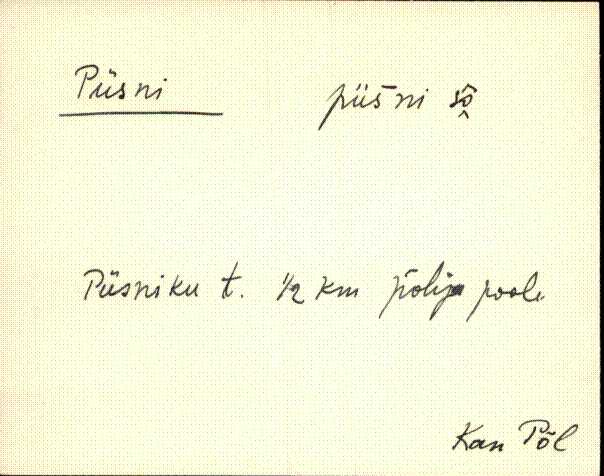 Püsni püšni so̭
Püsniku t. 1/2 km põhja poole
Kan Põl